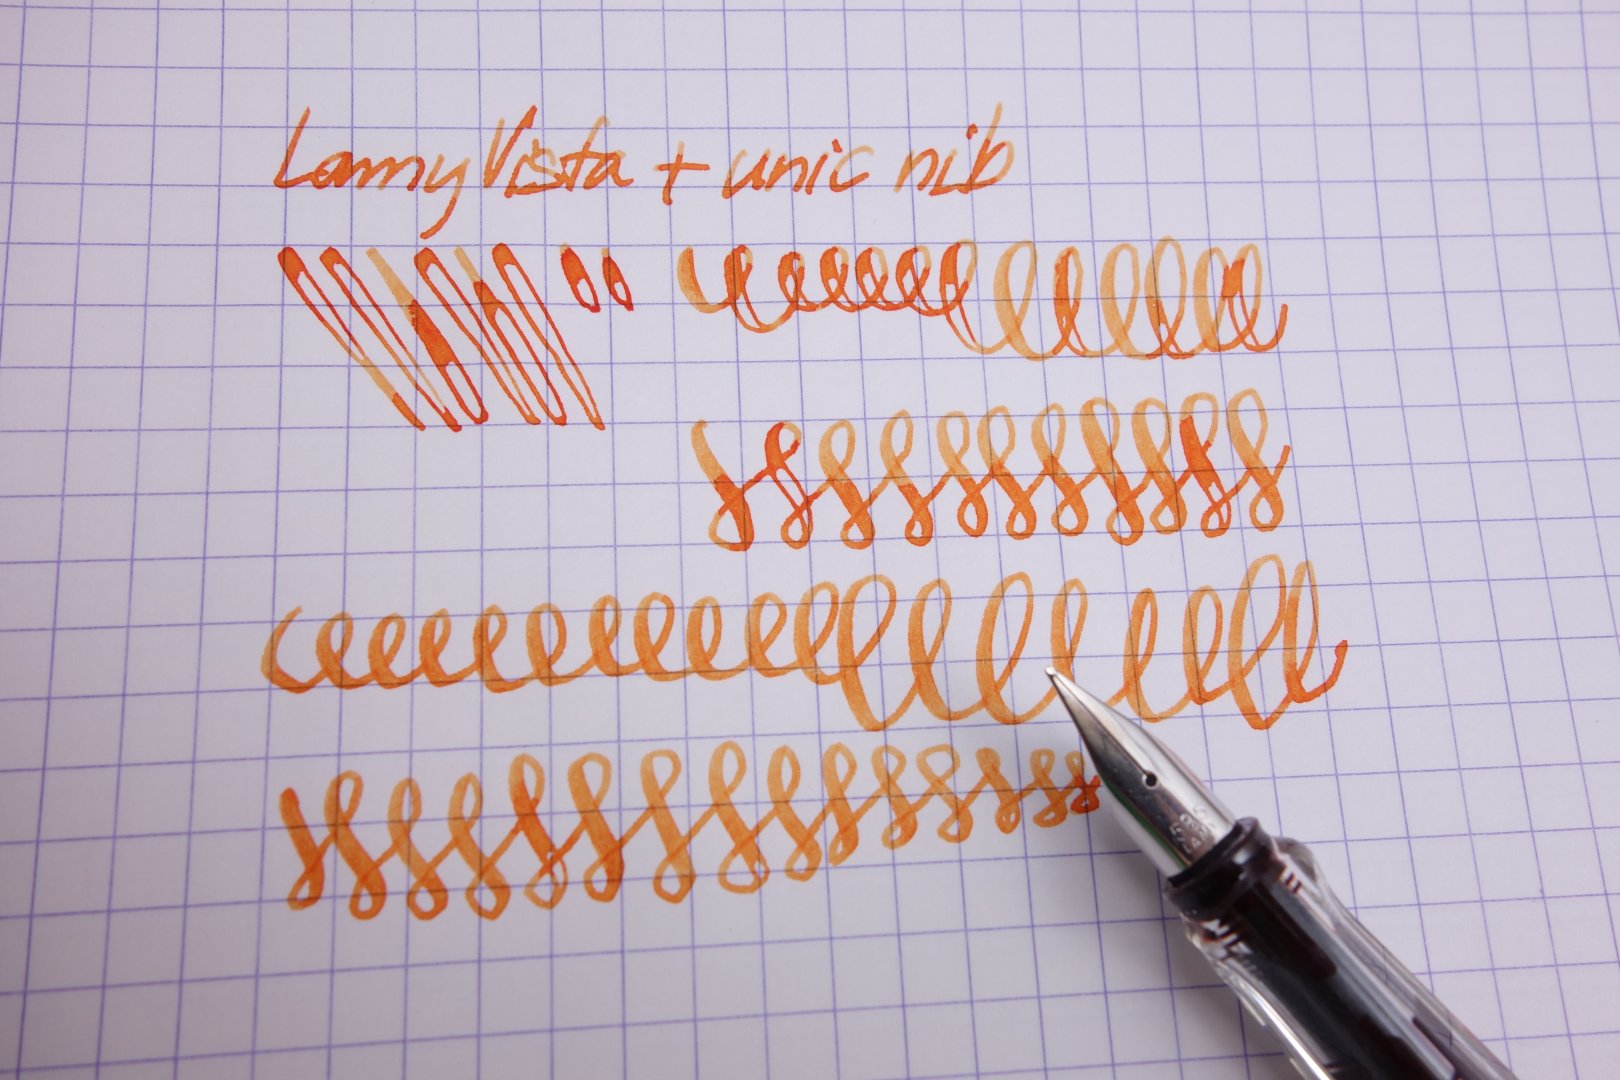 Lamy Vista + unic nib